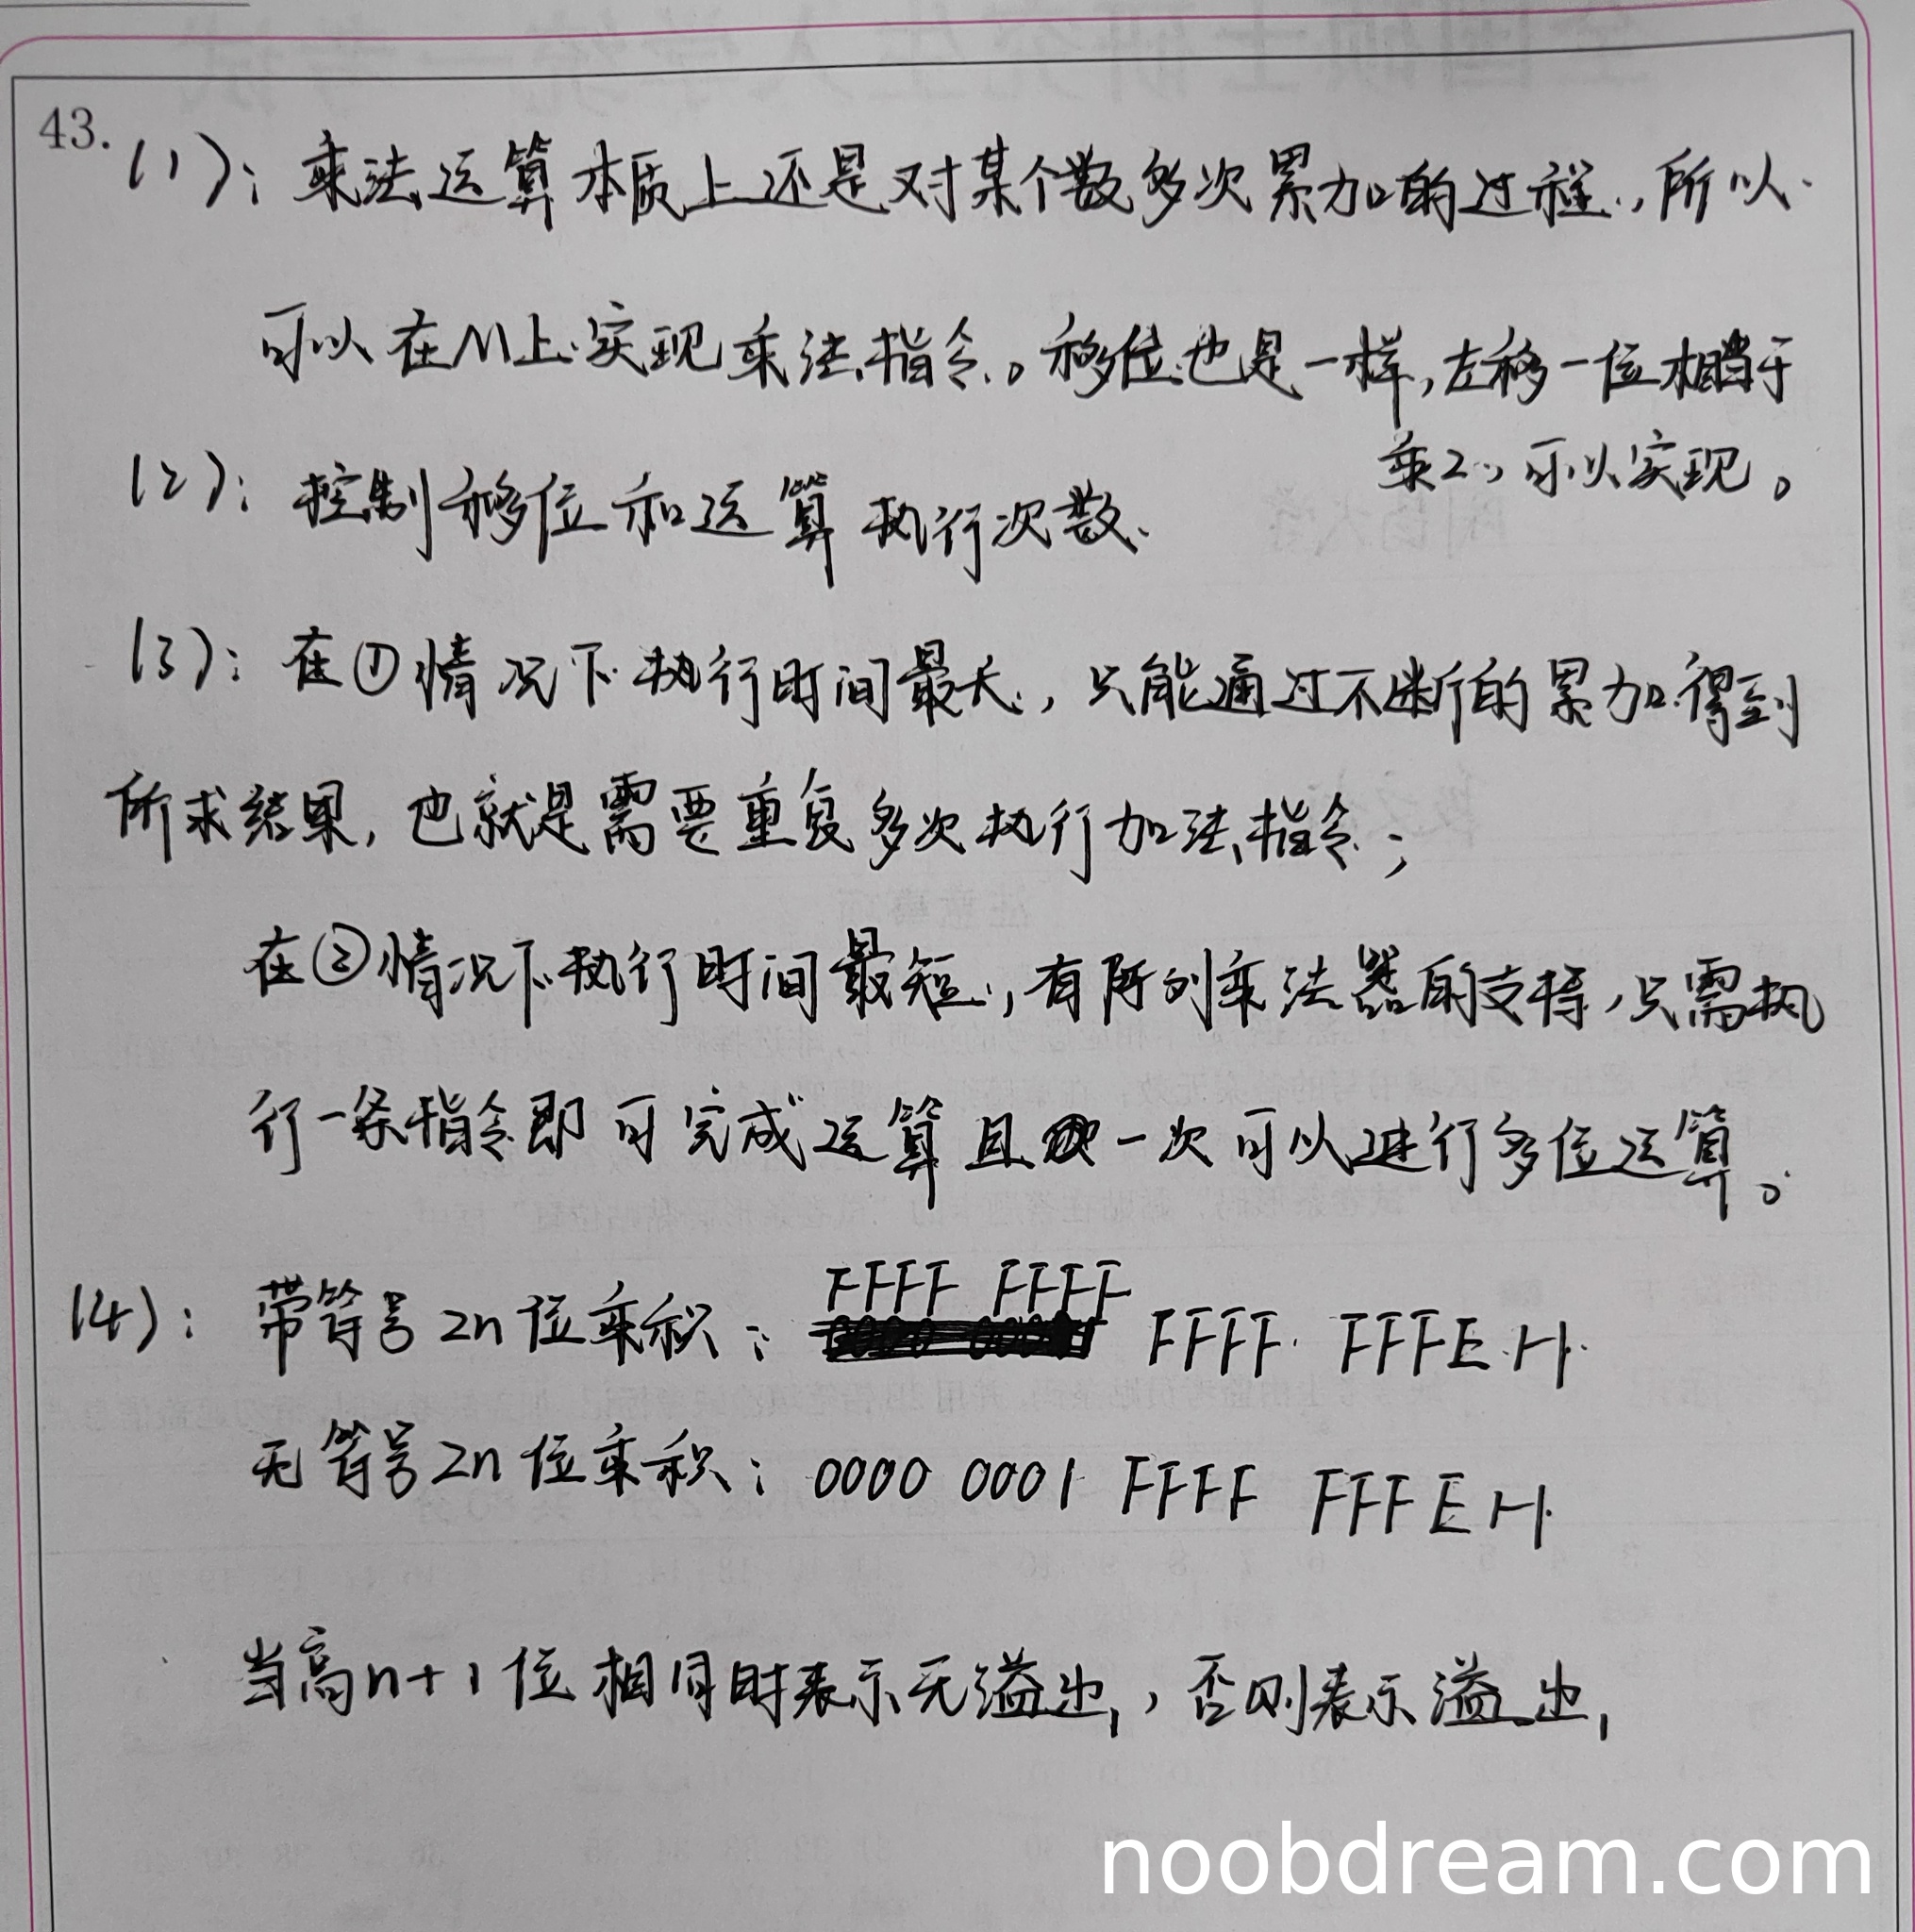 43.
(1): 乘法运算本质上还是对某个数多次累加的过程,所以
可以在M上实现乘法指令。移位也是一样,左移一位相当于
乘2,可以实现。
(2): 控制移位和运算执行次数.
(3): 在①情况下执行时间最长,只能通过不断的累加得到
所求结果,也就是需要重复多次执行加法指令;
在②情况下执行时间最短,有阵列乘法器的支持,只需执
行一条指令即可完成运算且一次可以进行多位运算。
(4): 带符号2n位乘积: FFFF FFFF FFFF FFFE H.
无符号2n位乘积: 0000 0001 FFFF FFFE H.
当高n+1位相同时表示无溢出,否则表示溢出,
noobdream.com